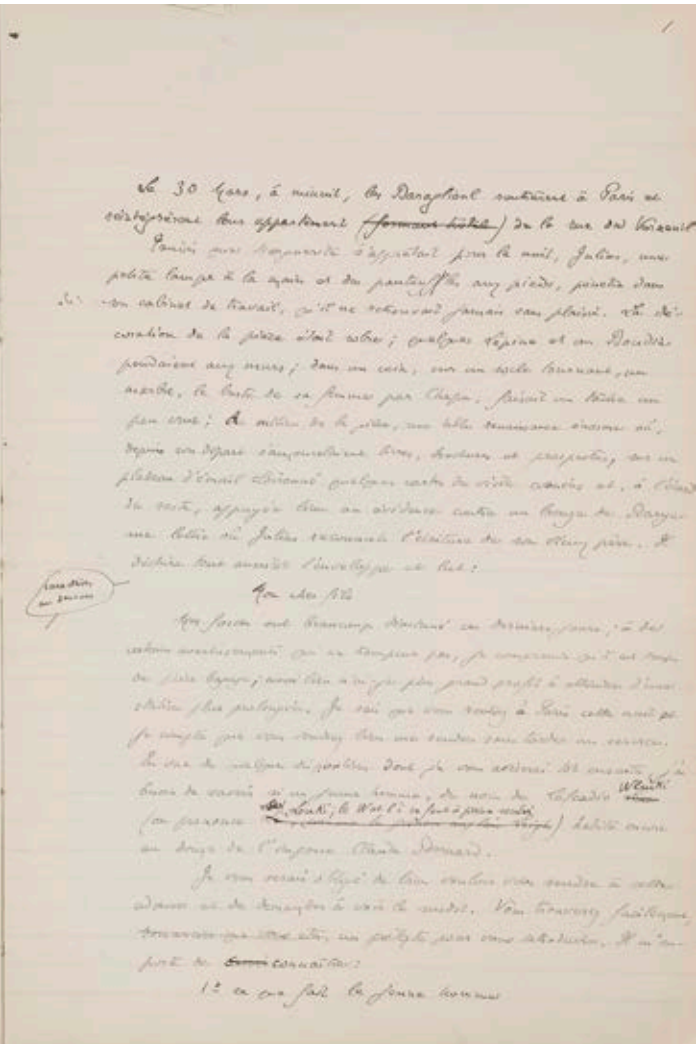 1
Le 30 Mars, à minuit, les Baraglioul rentrèrent à Paris et
réintégrèrent leur appartement (formant hôtel) de la rue de Verneuil
Tandis que Marguerite s'apprêtait pour la nuit, Julius, une
petite lampe à la main et des pantoufles aux pieds, pénétra dans
son cabinet de travail, qu'il ne retrouvait jamais sans plaisir. La dé-
coration de la pièce était sobre; quelques Lépine et un Boudin
pendaient aux murs; dans un coin, sur un socle tournant, un
marbre, le buste de sa femme par Chapu, faisait une tache un
peu crue; au milieu de la pièce, une table renaissance énorme où,
depuis son départ s'amoncelaient livres, brochures et prospectus, sur un
plateau d'émail cloisonné quelques cartes de visite cornées et, à l'écart
du reste, appuyée bien en évidence contre un bronze de Barye
une lettre où Julius reconnut l'écriture de son vieux père. Il
déchira tout aussitôt l'enveloppe et lut:
Mon cher fils
Mes forces ont beaucoup diminué ces derniers jours; à de
certains avertissements qui ne trompent pas, je comprends qu'il est temps
de plier bagage; aussi bien n'ai-je plus grand profit à attendre d'une
station plus prolongée. Je sais que vous rentrez à Paris cette nuit et
je compte que vous voudrez bien me rendre sans tarder un service.
En vue de quelques dispositions dont je vous aviserai tôt ensuite, j'ai
besoin de savoir si un jeune homme, du nom de Lafcadio Wluiki
(on prononce Louki; le W et l'i se font à peine sentir) habite encore
au douze de l'impasse Claude Bernard.
Je vous serai obligé de bien vouloir vous rendre à cette
adresse et de demander à voir le susdit. Vous trouverez facilement,
romancier que vous êtes, un prétexte pour vous introduire. Il m'im-
porte de connaître:
1° ce que fait le jeune homme